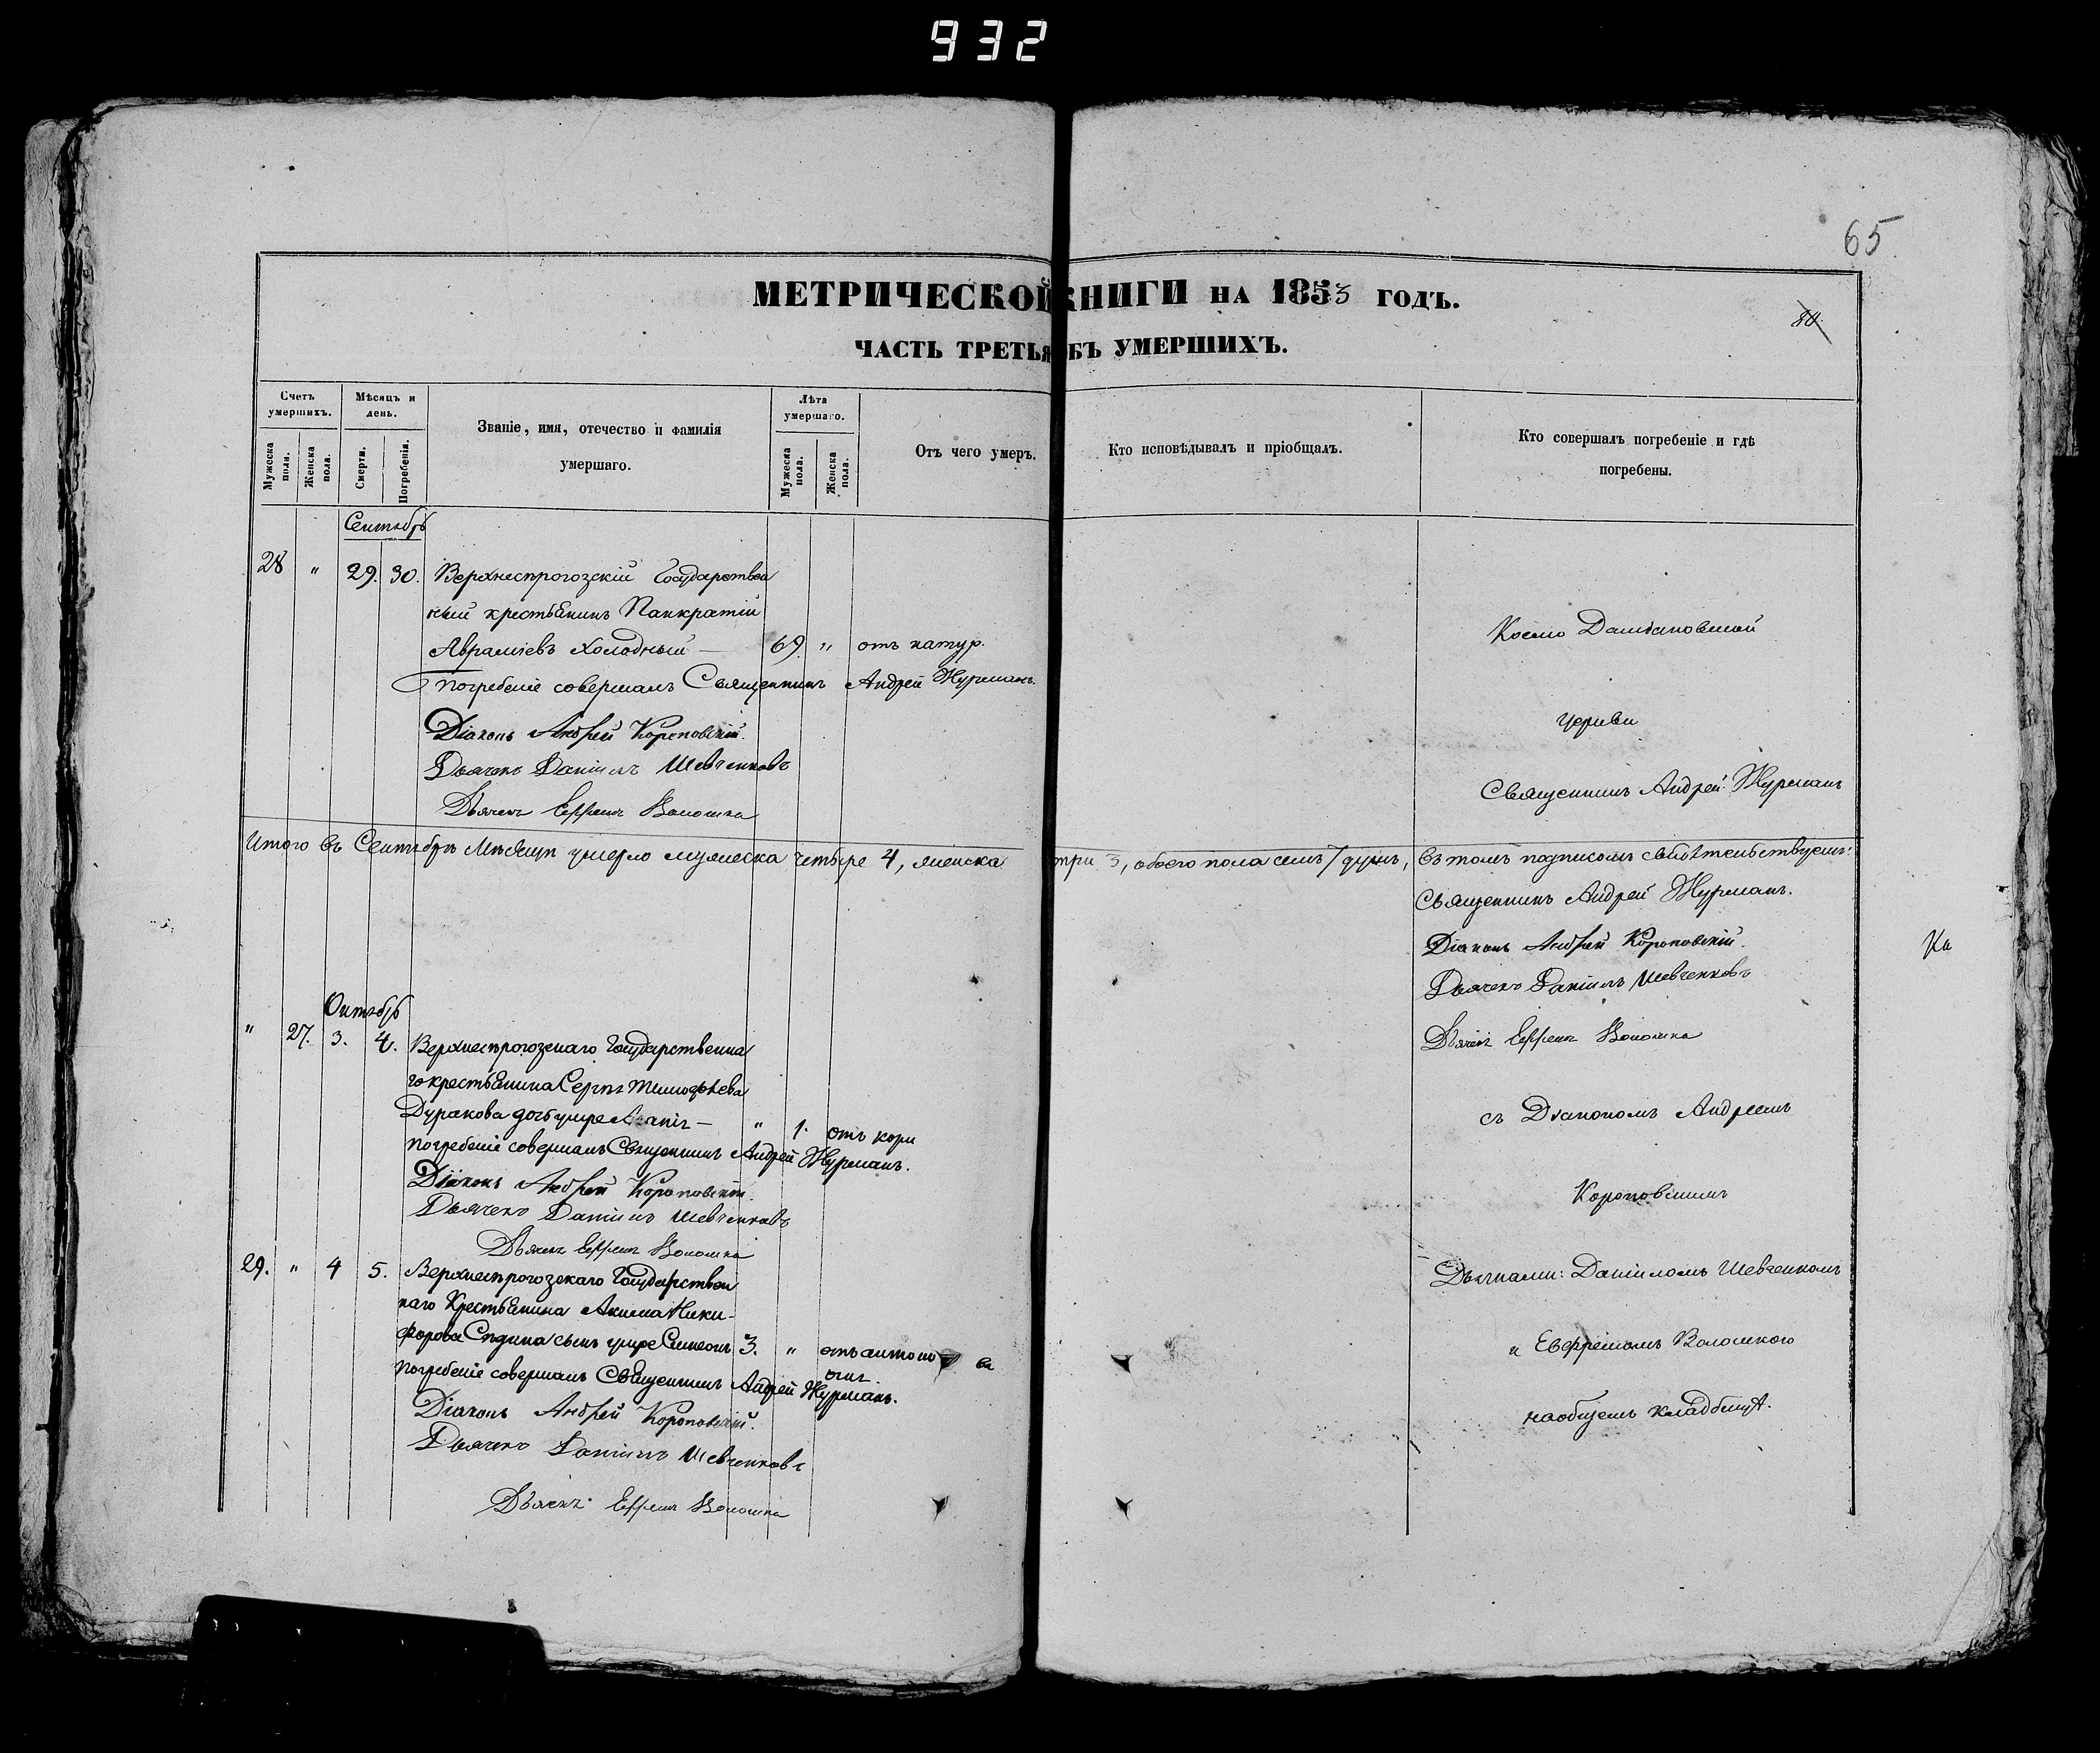 932
65
МЕТРИЧЕСКОЙ КНИГИ НА 1853 ГОДЪ.
80
ЧАСТЬ ТРЕТЬЯ БЪ УМЕРШИХЪ.
Счетъ умершихъ.
Мужеска пола.
Женска пола.
Мѣсяцъ и день.
Смерти.
Погребенія.
Званіе, имя, отечество и фамилія
умершаго.
Лѣта умершаго.
Мужеска пола.
Женска пола.
Отъ чего умеръ.
Кто исповѣдывалъ и пріобщалъ.
Кто совершалъ погребеніе и гдѣ
погребены.
Сентябрь
28 " 29. 30. Верхнесірогозскій Государствен
ный крестьянинъ Панкратій
Авраміевъ Холодный — 69. " отъ натур.
Погребеніе совершалъ Священникъ Андрей Журманъ.
Діаконъ Андрей Короповскій.
Дьячекъ Даніилъ Шевченковъ
Дьячекъ Ефремъ Волошка
Космо Даміановской
церкви
Священникъ Андрей Журманъ
Итого въ Сентябрѣ мѣсяцѣ умерло мужеска четыре 4, женска три 3, обоего пола семь 7 душъ, въ томъ подписомъ свидѣтельствуемъ:
Священникъ Андрей Журманъ.
Діаконъ Андрей Короповскій.
Ка
Дьячекъ Даніилъ Шевченковъ
Дьячекъ Ефремъ Волошка
Октябрь
" 27. 3. 4. Верхнесірогозскаго Государственна
го крестьянина Сергѣя Тимофѣева
Дуракова дочь умре — " 1. отъ кори
Погребеніе совершалъ Священникъ Андрей Журманъ.
Діаконъ Андрей Короповскій.
Дьячекъ Даніилъ Шевченковъ
Дьячекъ Ефремъ Волошка
съ Діакономъ Андреемъ
Короповскимъ
29. " 4 5. Верхнесірогозскаго Государствен
наго Крестьянина Акима Ники-
форова сынъ умре Симеонъ 3. "
Погребеніе совершалъ Священникъ Андрей Журманъ.
Діаконъ Андрей Короповскій.
Дьячекъ Даніилъ Шевченковъ
Дьячекъ Ефремъ Волошка
Дьячками: Даніиломъ Шевченкомъ
и Евфремомъ Волошкого
на общемъ кладбищѣ.